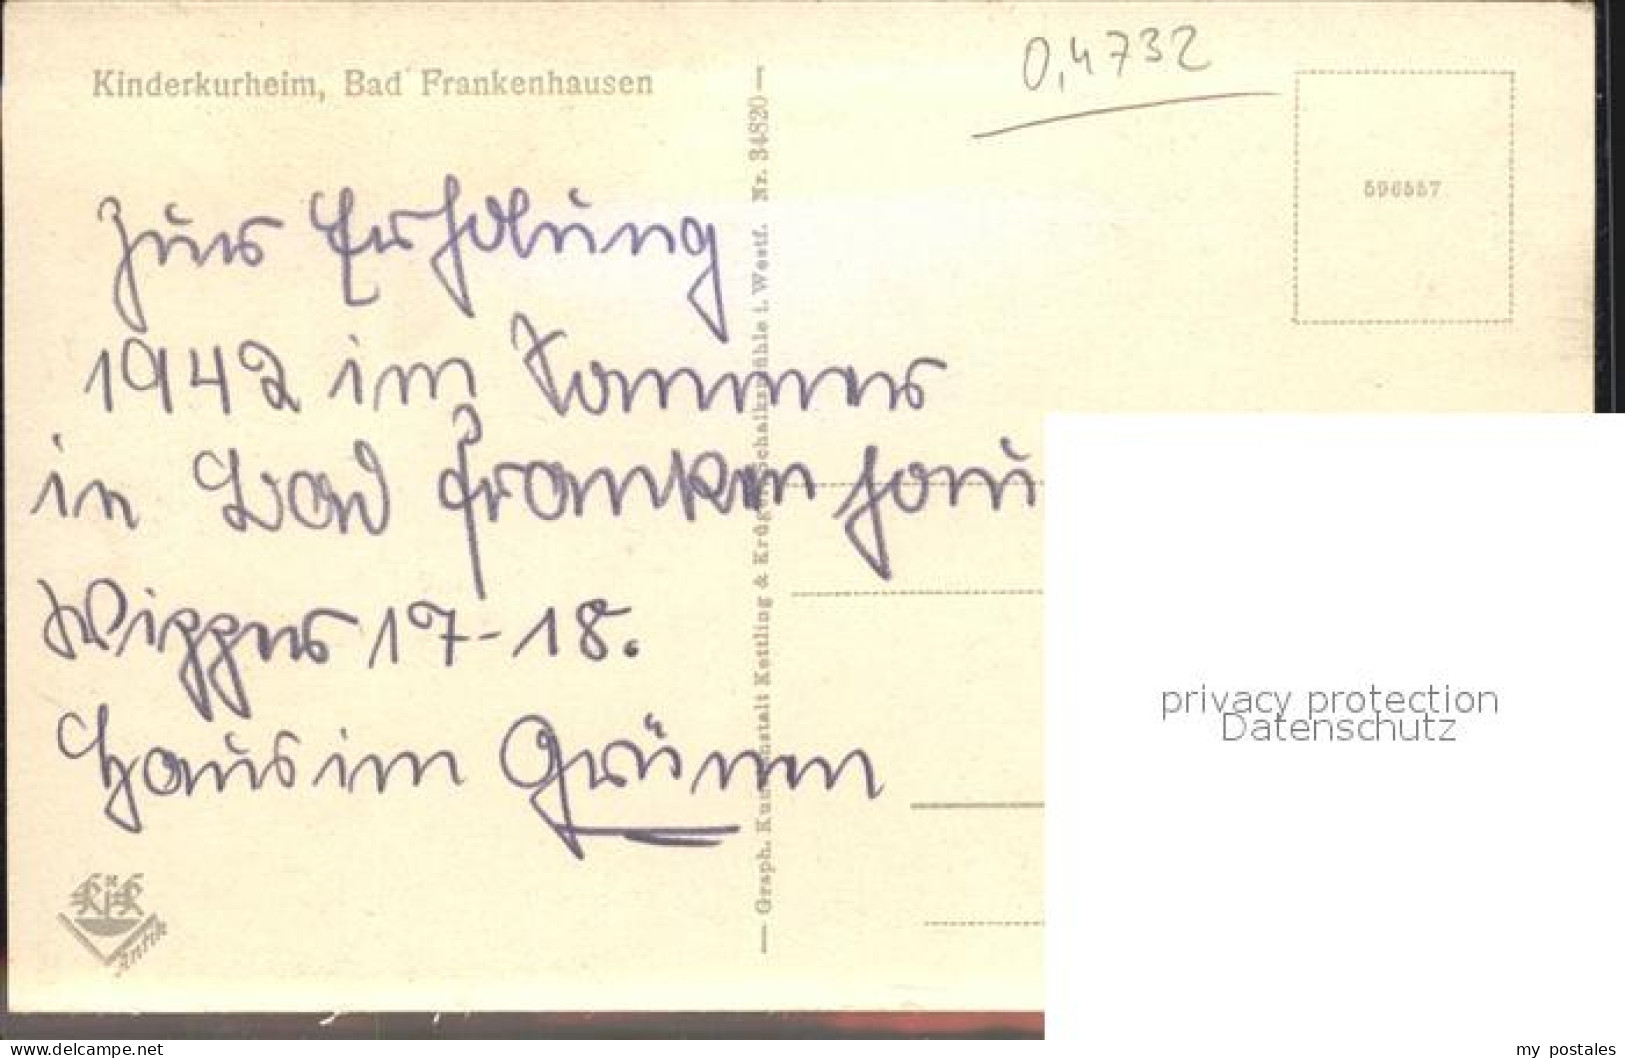 Kinderkurheim, Bad Frankenhausen
0,4732
596557
Zur Erholung
1942 im Sommer
in Bad Frankenhau
Wipper 17-18.
Haus im Grünen
Graph. Kunstanstalt Kettling & Krüger, Schalksmühle i. Westf. Nr. 34820
KiK
Antik
privacy protection
Datenschutz
www.delcampe.net
my postales